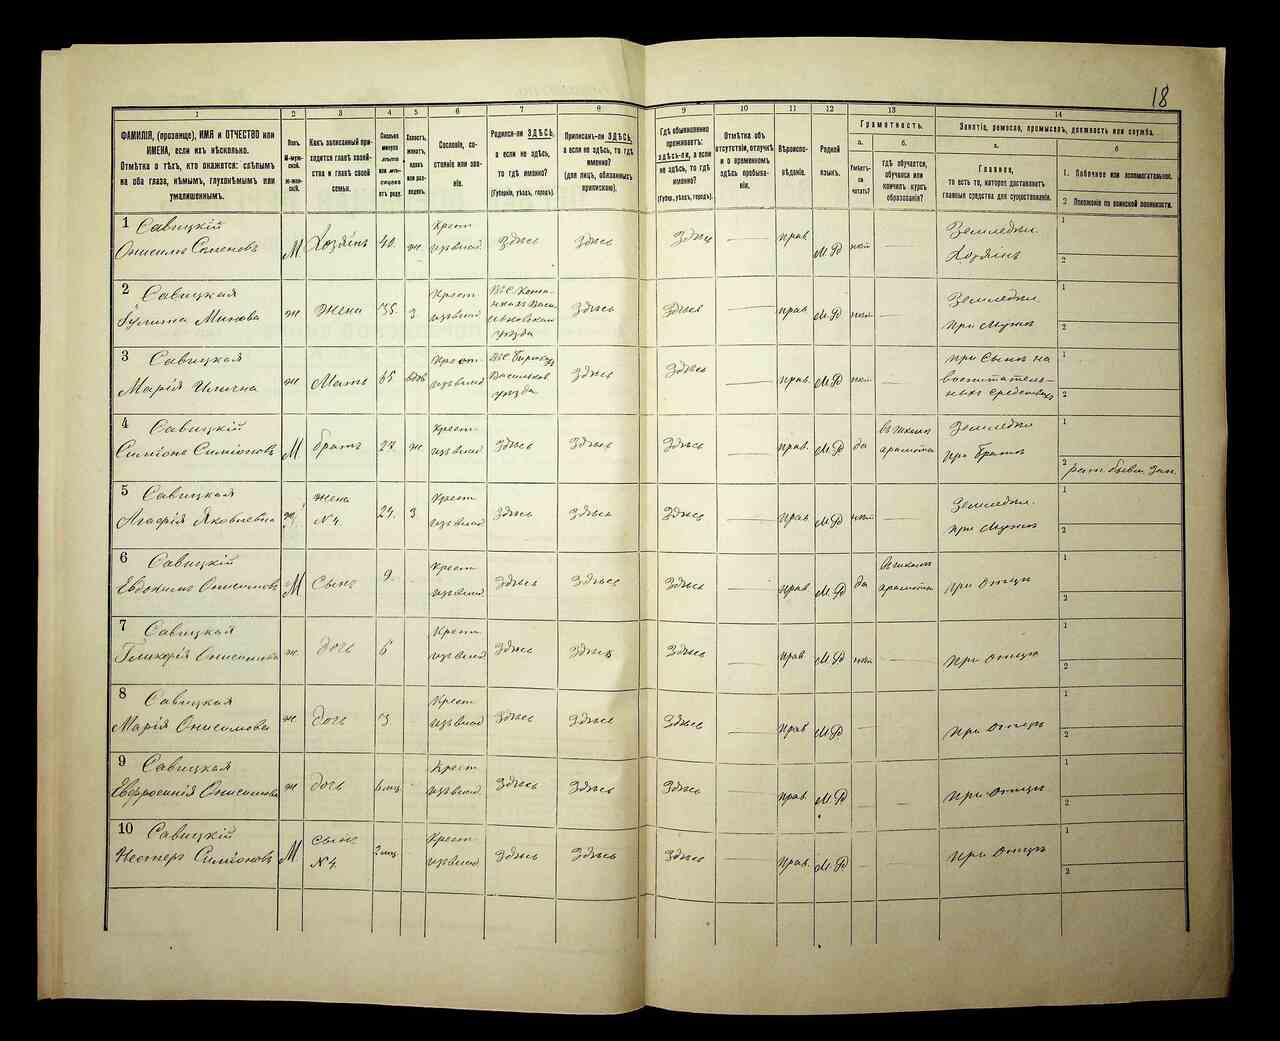 18
1
2
3
4
5
6
7
8
9
10
11
12
13
14
ФАМИЛІЯ, (прозвище), ИМЯ и ОТЧЕСТВО или
ИМЕНА, если ихъ нѣсколько.
Отмѣтка о тѣхъ, кто окажется: слѣпымъ
на оба глаза, нѣмымъ, глухонѣмымъ или
умалишеннымъ.
Полъ.
М-муж-
ской.
ж-жен-
скій.
Какъ записанный при-
ходится главѣ хозяй-
ства и главѣ своей
семьи.
Сколько
минуло
лѣтъ
или мѣ-
сяцевъ
отъ роду.
Холостъ,
женатъ,
вдовъ
или раз-
веденъ.
Сословіе, со-
стояніе или зва-
ніе.
Родился-ли ЗДѢСЬ,
а если не здѣсь,
то гдѣ именно?
(Губернія, уѣздъ, городъ).
Приписанъ-ли ЗДѢСЬ,
а если не здѣсь, то гдѣ
именно?
(для лицъ, обязанныхъ
припискою).
Гдѣ обыкновенно
проживаетъ:
здѣсь-ли, а если
не здѣсь, то гдѣ
именно?
(Губер., уѣздъ, городъ).
Отмѣтка объ
отсутствіи, отлучкѣ
и о временномъ
здѣсь пребыва-
ніи.
Вѣроиспо-
вѣданіе.
Родной
языкъ.
Грамотность.
а.
Умѣетъ-
ли
читать?
б.
гдѣ обучается,
обучался или
кончилъ курсъ
образованія?
Занятіе, ремесло, промыселъ, должность или служба.
а.
Главное,
то есть то, которое доставляетъ
главныя средства для существованія.
б
1. Побочное или вспомогательное.
2 Положеніе по воинской повинности.
1 Савицкій
Онисимъ Семеновъ М Хозяинъ 40. ж. Крест. Здѣсь Здѣсь Здѣсь прав М.Р Земледѣл. Хозяинъ 1 2
2 Савицкая
Минова ж Жена 35. З Крест. уѣзда Здѣсь Здѣсь прав. М.Р Земледѣл при Мужѣ 1 2
3 Савицкая
Марія ж Мать 65 вдов Крест. уѣзда Здѣсь Здѣсь прав. М.Р при Сынѣ на средствахъ 1 2
4 Савицкій
М братъ 27 ж Крест. Здѣсь Здѣсь Здѣсь прав. М.Р да въ школѣ грамотѣ Земледѣл при братѣ 1 2
5 Савицкая
Агафія Яковлевна ж Жена №4 24. З Крест. Здѣсь Здѣсь Здѣсь прав М.Р Земледѣл. при Мужѣ 1 2
6 Савицкій
Евдокимъ Онисимовъ М Сынъ 9. Крест. Здѣсь Здѣсь Здѣсь прав. М.Р да въ школѣ грамотѣ при отцѣ 1 2
7 Савицкая
Гликерія Онисимова ж. дочь 6 Крест Здѣсь Здѣсь Здѣсь прав М.Р при отцѣ 1 2
8 Савицкая
Марія Онисимова ж дочь 3 Крест. Здѣсь Здѣсь Здѣсь прав М.Р. при отцѣ 1 2
9 Савицкая
Евфросинія Онисимова ж дочь Крест. Здѣсь Здѣсь Здѣсь прав. М.Р при отцѣ 1 2
10 Савицкій
Нестеръ М Сынъ №4. 2 мц. Крест. Здѣсь Здѣсь Здѣсь прав. М.Р. при отцѣ 1 2